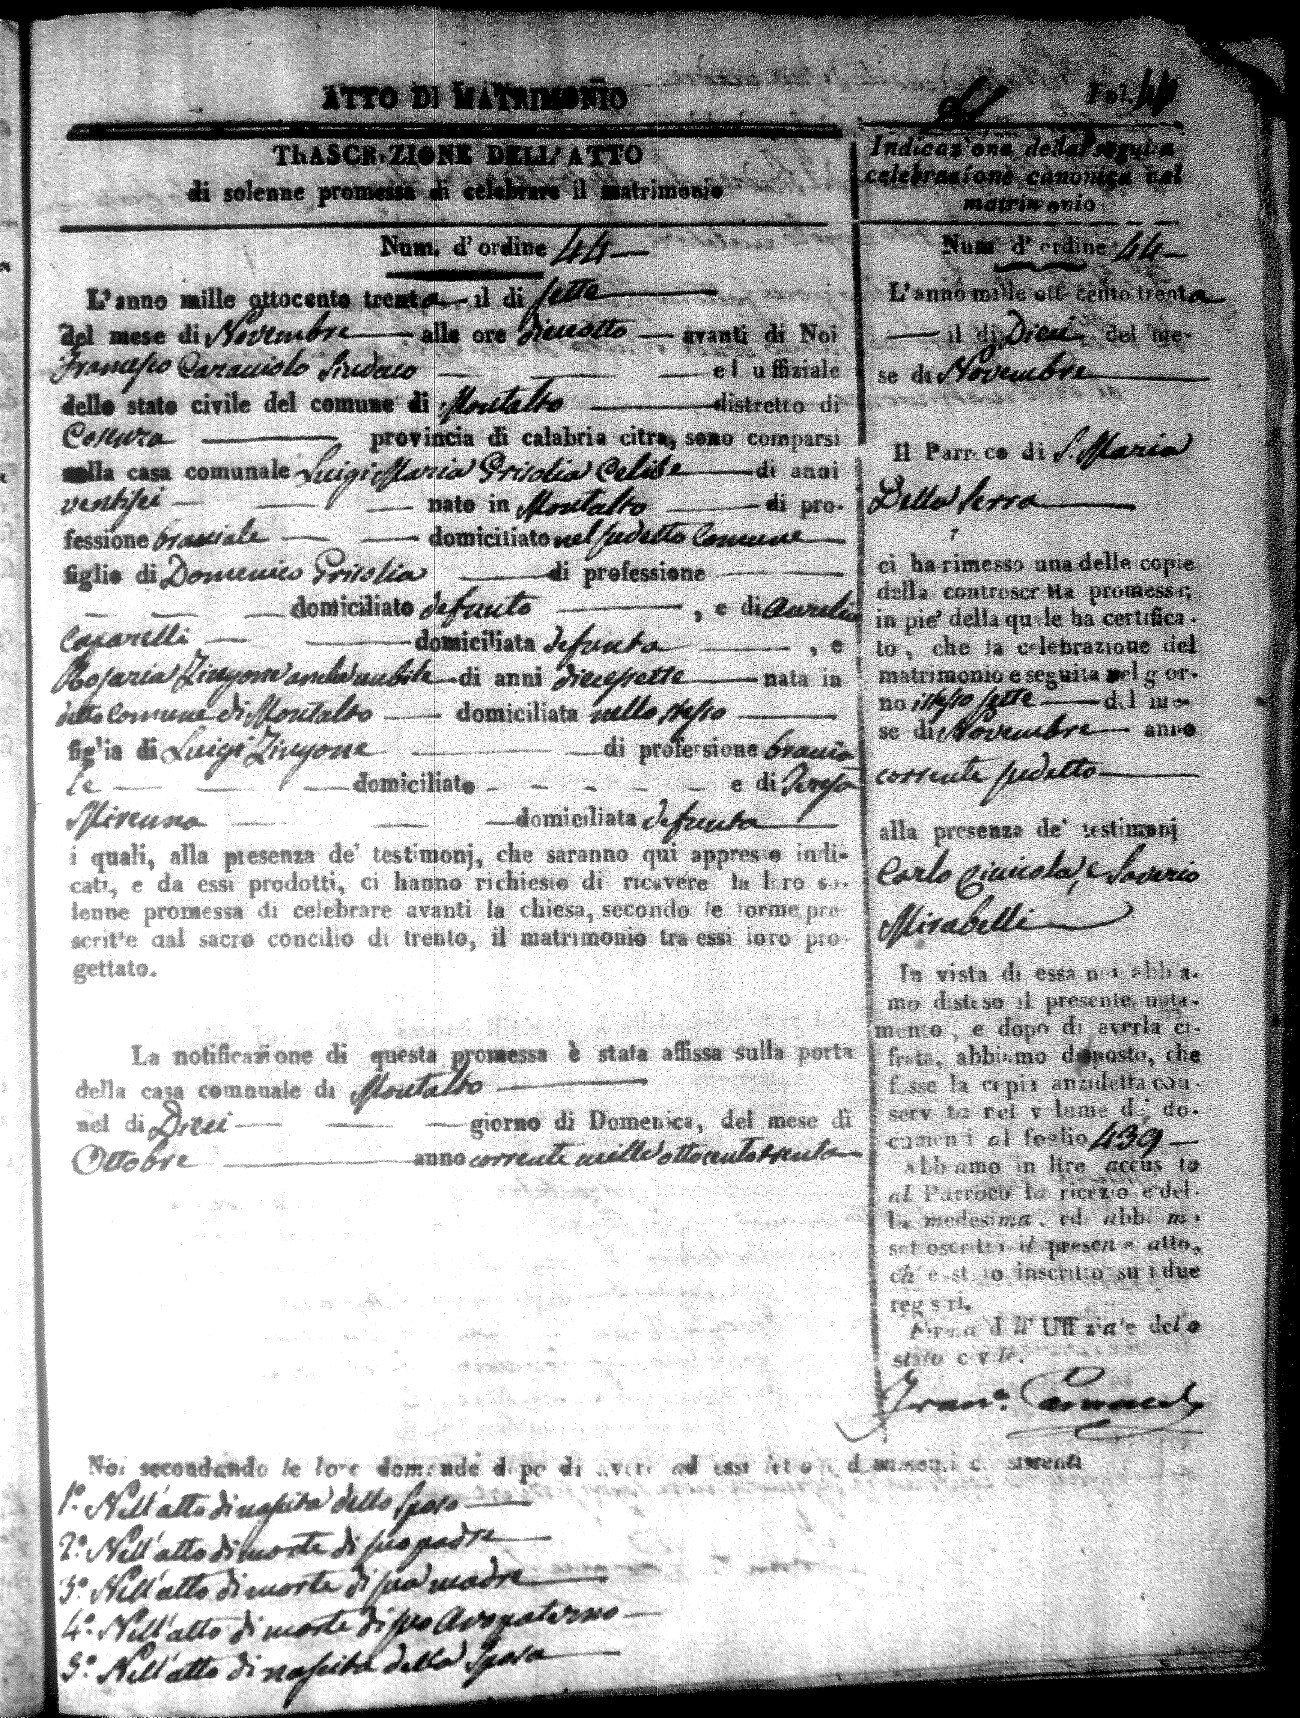 ATTO DI MATRIMONIO
Fol. 44
TRASCRIZIONE DELL'ATTO
di solenne promessa di celebrare il matrimonio
Num. d'ordine 44
L'anno mille ottocento trenta il di sette
del mese di Novembre alle ore diciotto avanti di Noi
Francesco Caracciolo Sindaco ed uffiziale
dello stato civile del comune di Montalto distretto di
Cosenza provincia di calabria citra, sono comparsi
nella casa comunale Luigi Maria Grisolia Celibe di anni
ventisei nato in Montalto di pro-
fessione bracciale domiciliato nel sudetto Comune
figlio di Domenico Grisolia di professione
domiciliato defunto , e di Aurelia
domiciliata defunta , e
Rosaria Zingone anche nubile di anni diecisette nata in
detto Comune di Montalto domiciliata nello stesso
figlia di Luigi Zingone di professione braccia
le domiciliato e di Teresa
domiciliata defunta
i quali, alla presenza de' testimonj, che saranno qui appresso indi-
cati, e da essi prodotti, ci hanno richiesto di ricevere la loro so-
lenne promessa di celebrare avanti la chiesa, secondo le forme pre-
scritte dal sacro concilio di trento, il matrimonio tra essi loro pro-
gettato.
La notificazione di questa promessa è stata affissa sulla porta
della casa comunale di Montalto
nel di Dieci giorno di Domenica, del mese di
Ottobre anno corrente mille ottocento trenta
Indicazione della seguita
celebrazione canonica del
matrimonio
Num d'ordine 44
L'anno mille ottocento trenta
il di Dieci del me-
se di Novembre
Il Parroco di S. Maria
Della Serra
ci ha rimesso una delle copie
della controscritta promessa;
in pie' della quale ha certifica-
to, che la celebrazione del
matrimonio e seguita nel gior-
no istesso sette del me-
se di Novembre anno
corrente sudetto
alla presenza de' testimonj
Carlo e Saverio
Mirabelli
In vista di essa noi abbia-
mo disteso il presente nota-
mento, e dopo di averla ci-
frata, abbiamo disposto, che
fosse la copia anzidetta con-
servata nel volume de' do-
cumenti al foglio 439
Abbiamo in oltre accusato
al Parroco la ricezione del-
la medesima, ed abbiamo
sottoscritto il presente atto,
ch'è stato inscritto sui due
registri.
Firma dell'Uffiziale dello
stato civile.
Noi secondando le loro domande dopo di avere ad essi letto i documenti consistenti
1º Nell'atto di nascita dello Sposo
2º Nell'atto di morte di suo padre
3º Nell'atto di morte di sua madre
4º Nell'atto di morte di suo Avo paterno
5º Nell'atto di nascita della Sposa